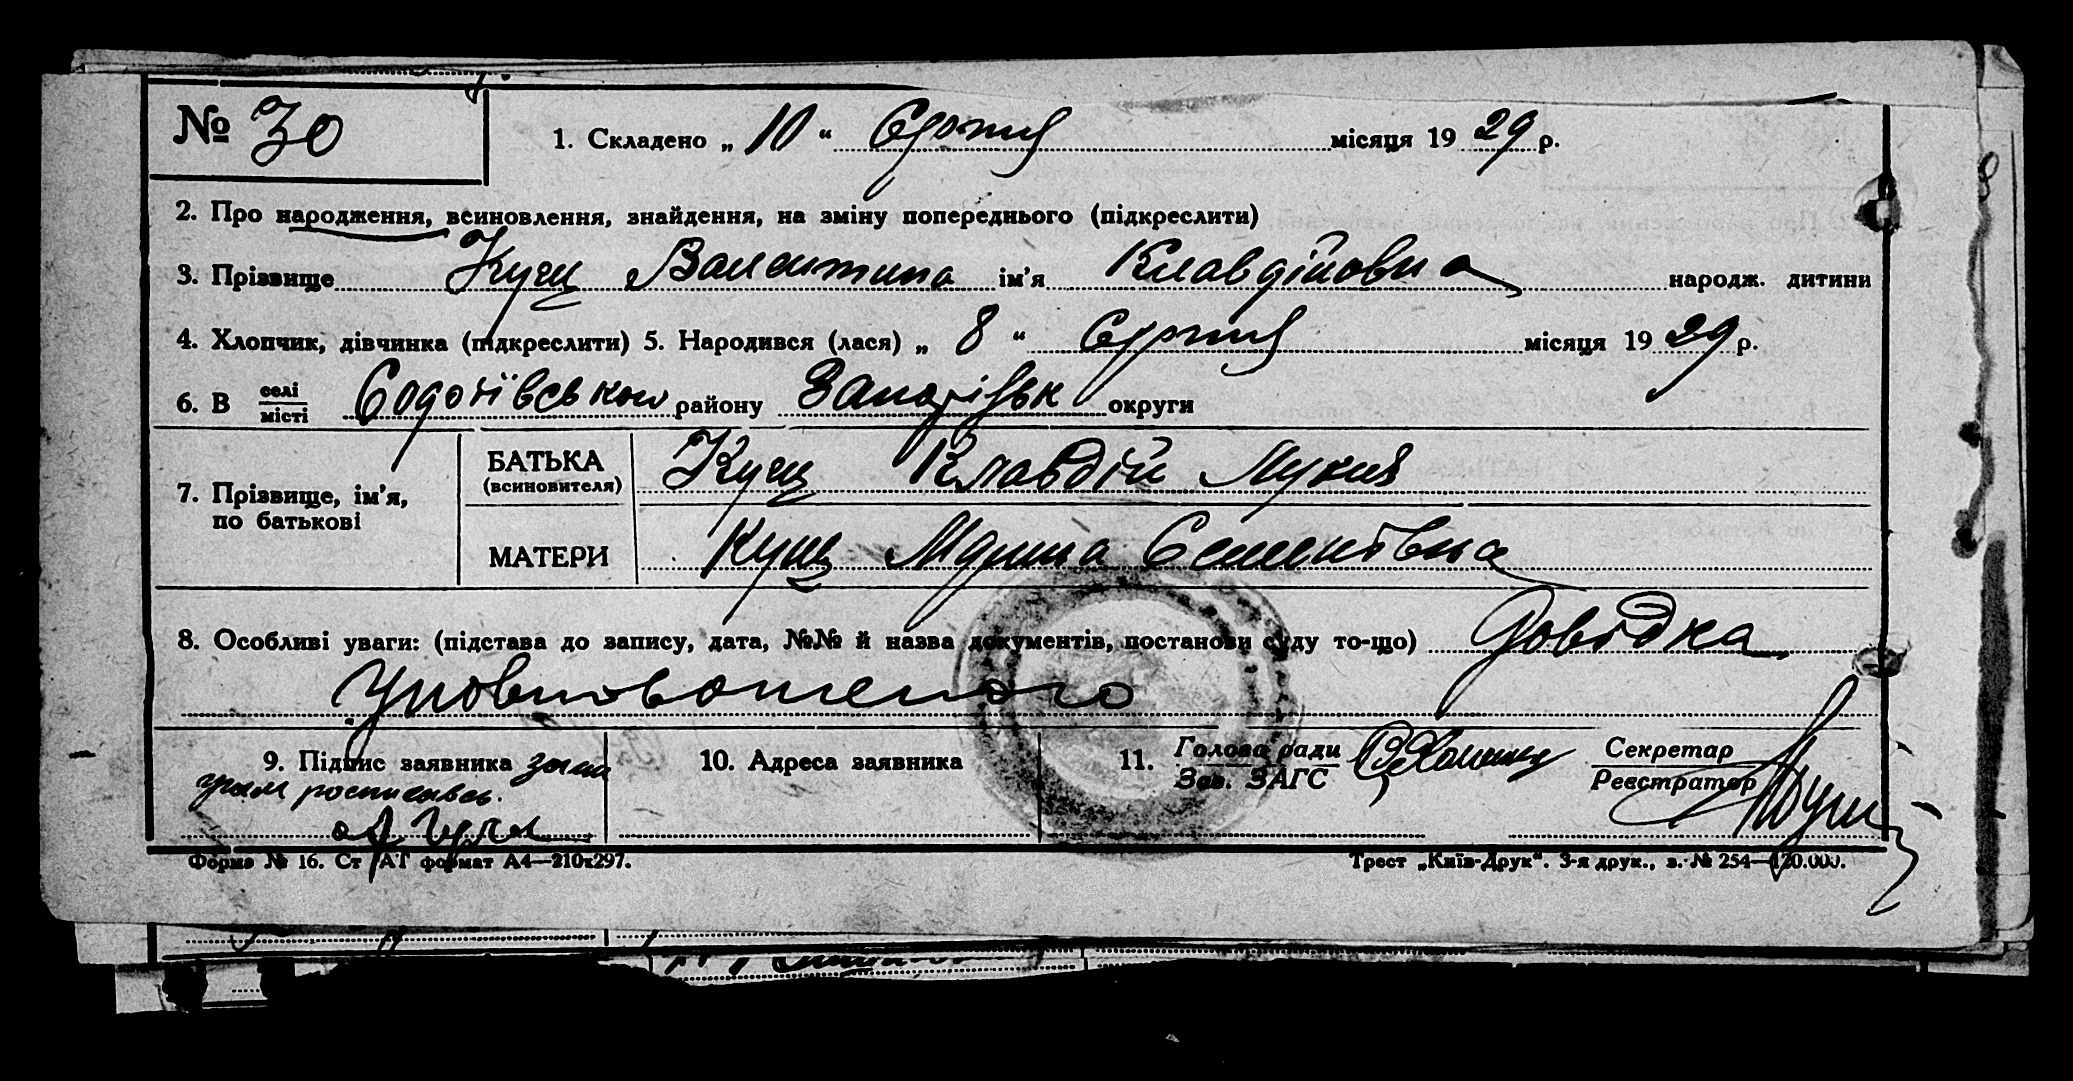 № 30
1. Складено „ 10 “ Серпня місяця 19 29 р.
2. Про народження, всиновлення, знайдення, на зміну попереднього (підкреслити)
3. Прізвище Кущ Валентина ім’я Клавдійовна народж. дитини
4. Хлопчик, дівчинка (підкреслити) 5. Народився (лася) „ 8 “ Серпня місяця 19 29 р.
6. В селі
місті району округи
7. Прізвище, ім’я,
по батькові
БАТЬКА
(всиновителя)
Кущ Клавдій
МАТЕРИ
Кущ Семенівна
8. Особливі уваги: (підстава до запису, дата, №№ й назва документів, постанови суду то-що) Довідка
Уповноваженого
9. Підпис заявника
10. Адреса заявника
11. Голова ради
Зав. ЗАГС
Секретар
Реєстратор
Форма № 16. Ст АТ формат А4—210х297.
Трест „Київ-Друк“. 3-я друк., з. № 254—120.000.